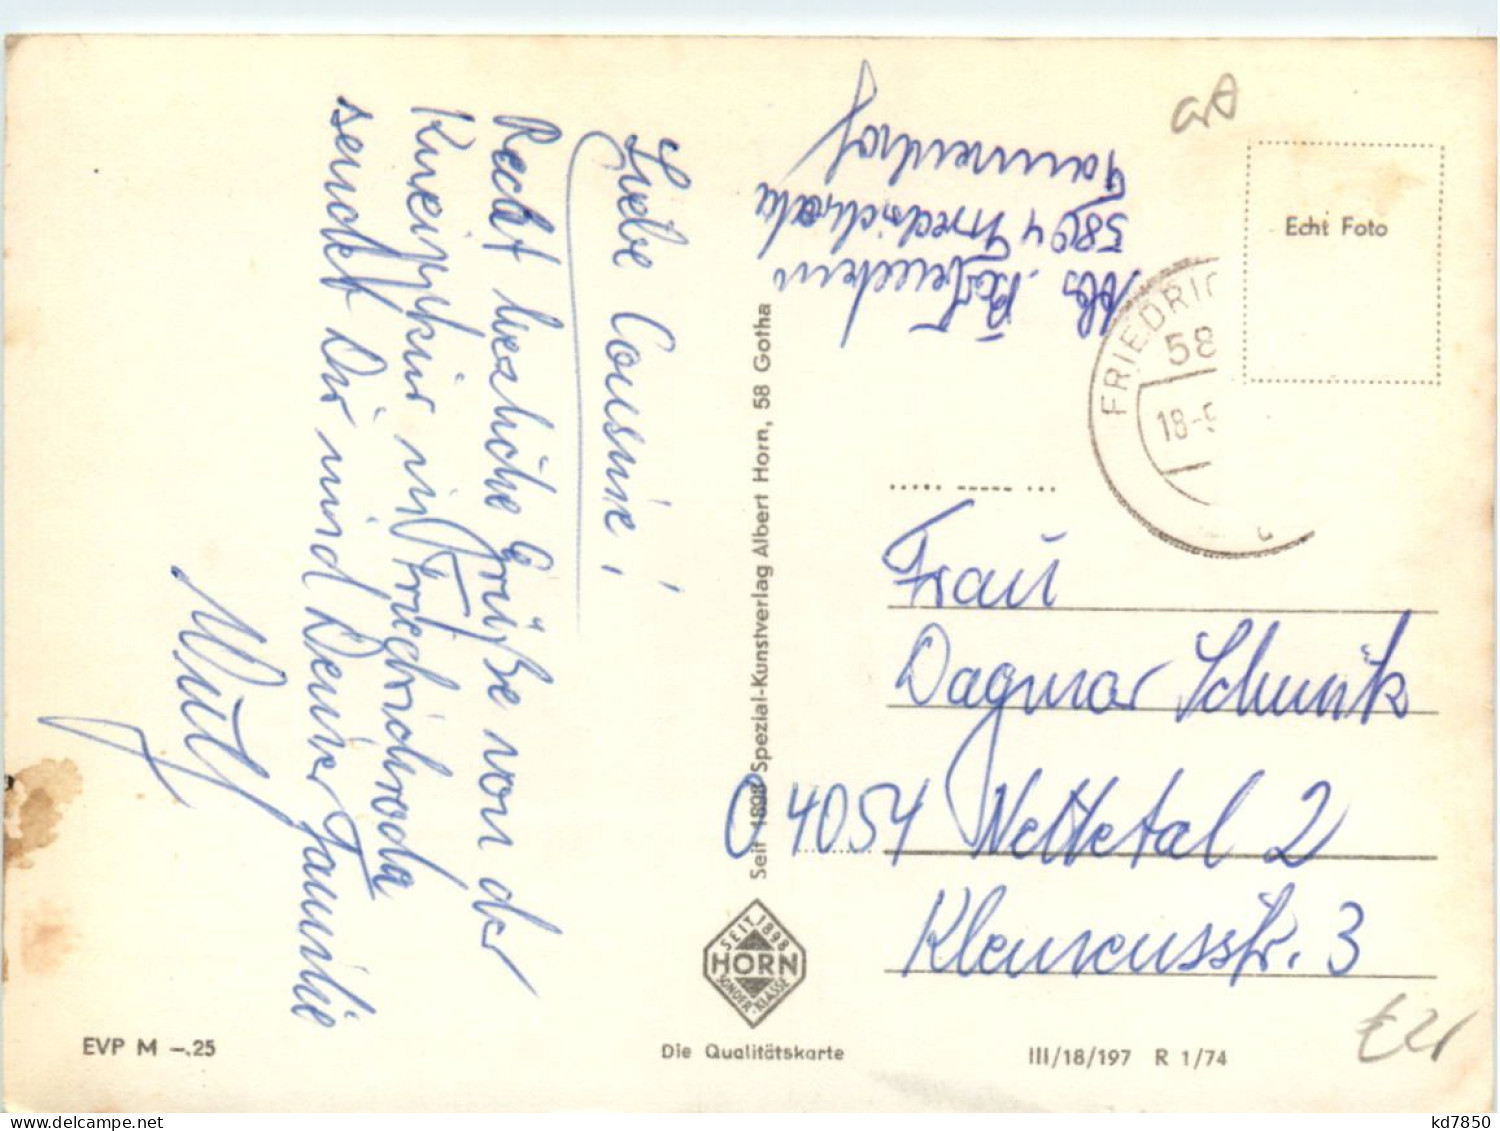 Liebe Cousine!
Recht herzliche Grüße von der
Kneippkur in Friedrichroda
sendet Dir und Deiner Familie
Willy
Abs.
5804 Friedrichroda
Tannenhof
Echt Foto
FRIEDRIC
58
18-5
Frau
Dagmar Schunik
04054 Nettetal 2
Klemensstr. 3
Seit 1898 Spezial-Kunstverlag Albert Horn, 58 Gotha
SEIT 1898
HORN
SONDER-KLASSE
EVP M -.25
Die Qualitätskarte
III/18/197 R 1/74
kd7850